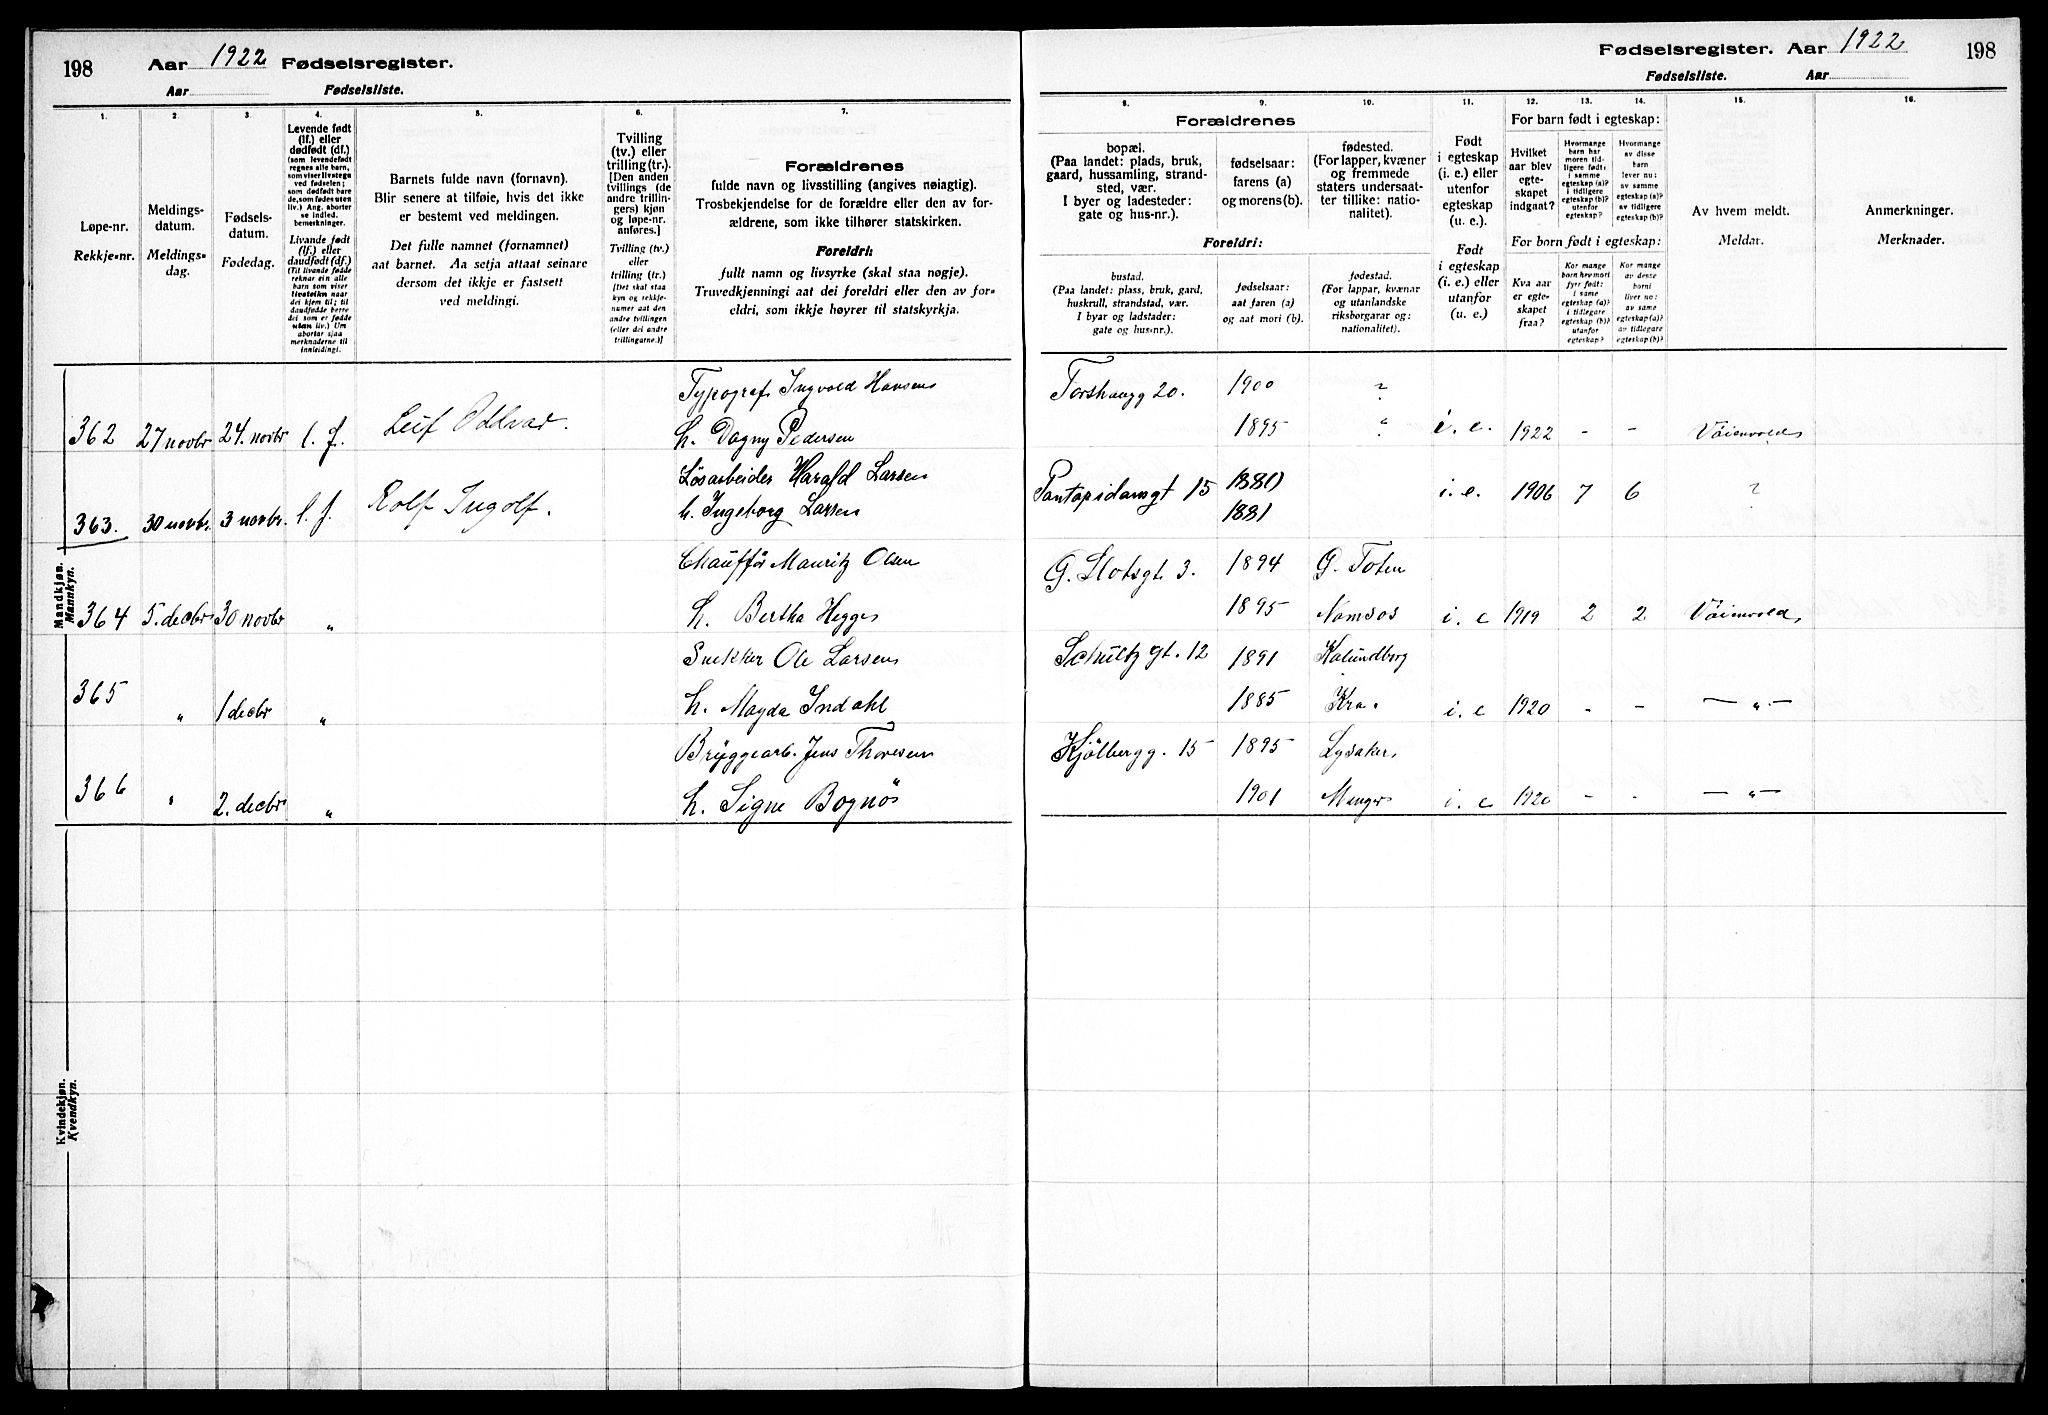 198
Aar 1922 Fødselsregister.
Aar Fødselsliste.
1.
Løpe-nr.
Rekkje-nr.
2.
Meldings-
datum.
Meldings-
dag.
3.
Fødsels-
datum.
Fødedag.
4.
Levende født
(lf.) eller
dødfødt (df.)
(som levendefødt
regnes alle barn,
som viser livstegn
ved fødselen;
som dødfødt bare
de, som fødes uten
liv.) Ang. aborter
se indled.
bemerkninger.
Livande født
(lf.) eller
daudfødt (df.)
(Til livande fødde
reknar ein alle
barn som viser
livsteikn naar
dei kjem til; til
daudfødde berre
dei som er fødde
utan liv.) Um
abortar sjaa
merknaderne til
innleidingi.
5.
Barnets fulde navn (fornavn).
Blir senere at tilføie, hvis det ikke
er bestemt ved meldingen.
Det fulle namnet (fornamnet)
aat barnet. Aa setja attaat seinare
dersom det ikkje er fastsett
ved meldingi.
6.
Tvilling
(tv.) eller
trilling (tr.).
[Den anden
tvillings (de
andre trillin-
gers) kjøn
og løpe-nr.
anføres.]
Tvilling (tv.)
eller
trilling (tr.)
[Det skal staa
kyn og rekkje-
numer aat den
andre tvillingen
(eller dei andre
trillingarne.)]
7.
Forældrenes
fulde navn og livsstilling (angives nøiagtig).
Trosbekjendelse for de forældre eller den av for-
ældrene, som ikke tilhører statskirken.
Foreldri:
fullt namn og livsyrke (skal staa nøgje).
Truvedkjenningi aat dei foreldri eller den av for-
eldri, som ikkje høyrer til statskyrkja.
Mandkjøn.
Mannkyn.
Typograf Ingvold Hansen
362 27 novbr 24. novbr l. f. Leif Oddvar. h. Dagny Pedersen
Løsarbeider Harald Larsen
363. 30 novbr. 3 novbr. l. f. Rolf Ingolf. h. Ingeborg Larsen
Chauffør Mauritz Olsen
364 5. decbr 30 novbr " h. Bertha Hegge
Snekker Ole Larsen
365 " 1 decbr " h. Magda Indahl
Bryggearb. Jens Thoresen
366 " 2. decbr " h. Signe Bognøs
Kvindekjøn.
Kvendkyn.
Fødselsregister. Aar 1922
198
Fødselsliste. Aar
8.
Forældrenes
bopæl.
(Paa landet: plads, bruk,
gaard, hussamling, strand-
sted, vær.
I byer og ladesteder:
gate og hus-nr.).
Foreldri:
bustad.
(Paa landet: plass, bruk, gard,
huskrull, strandstad, vær.
I byar og ladstader:
gate og hus-nr.).
9.
fødselsaar:
farens (a)
og morens (b).
fødselsaar:
aat faren (a)
og aat mori (b).
10.
fødested.
(For lapper, kvæner
og fremmede
staters undersaat-
ter tillike: natio-
nalitet).
fødestad.
(For lappar, kvænar
og utanlandske
riksborgarar og:
nationalitet).
11.
Født
i egteskap
(i. e.) eller
utenfor
egteskap
(u. e.).
Født
i egteskap
(i. e.) eller
utanfor
(u. e.)
For barn født i egteskap:
12.
Hvilket
aar blev
egte-
skapet
indgaat?
13.
Hvormange
barn har
moren tid-
ligere født:
i samme
egteskap (a)?
i tidligere
egteskap (b)?
utenfor
egteskap?
14.
Hvormange
av disse
barn
lever nu:
av samme
egteskap (a)?
av tidligere
egteskap (b)?
For born født i egteskap:
Kva aar
er egte-
skapet
fraa?
Kor mange
born hev mori
fyrr født:
i same
egteskap (a)?
i tidlegare
egteskap (b)?
utanfor
egteskap?
Kor mange
av desse
borni
liver no:
av same
egteskap (a)?
av tidlegare
egteskap (b)?
15.
Av hvem meldt.
Meldar.
16.
Anmerkninger.
Merknader.
Torshaugg 20. 1900 ?
1895 " i. e. 1922 - - Vöienvold
Pontopidansgt 15 1881) i. e. 1906 7 6 ?
1881
G. Slotsgt 3. 1894 G. Toten
1895 Namsos i. e 1919 2 2 Vöienvold
Schültz gt. 12 1891 Kalundborg
1885 Kra. i. e 1920 - - — " —
Kjölbergg. 15 1895 Lysaker
1901 Manger i. e 1920 - - — " —